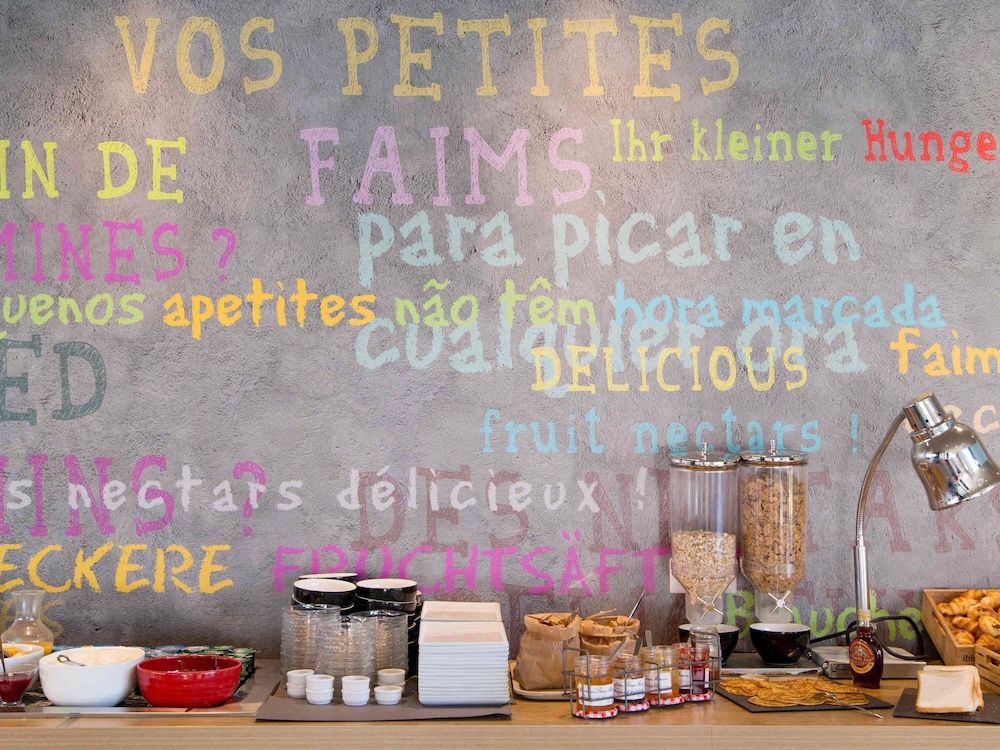 VOS PETITES
IN DE
FAIMS
Ihr kleiner Hunge
MINES ?
para picar en
uenos apetites não têm hora marcada
cualquier ora
ED
DELICIOUS
faim
fruit nectars !
INS ?
s nectars délicieux !
DES NECTAR
ECKERE
FRUCHTSÄFT